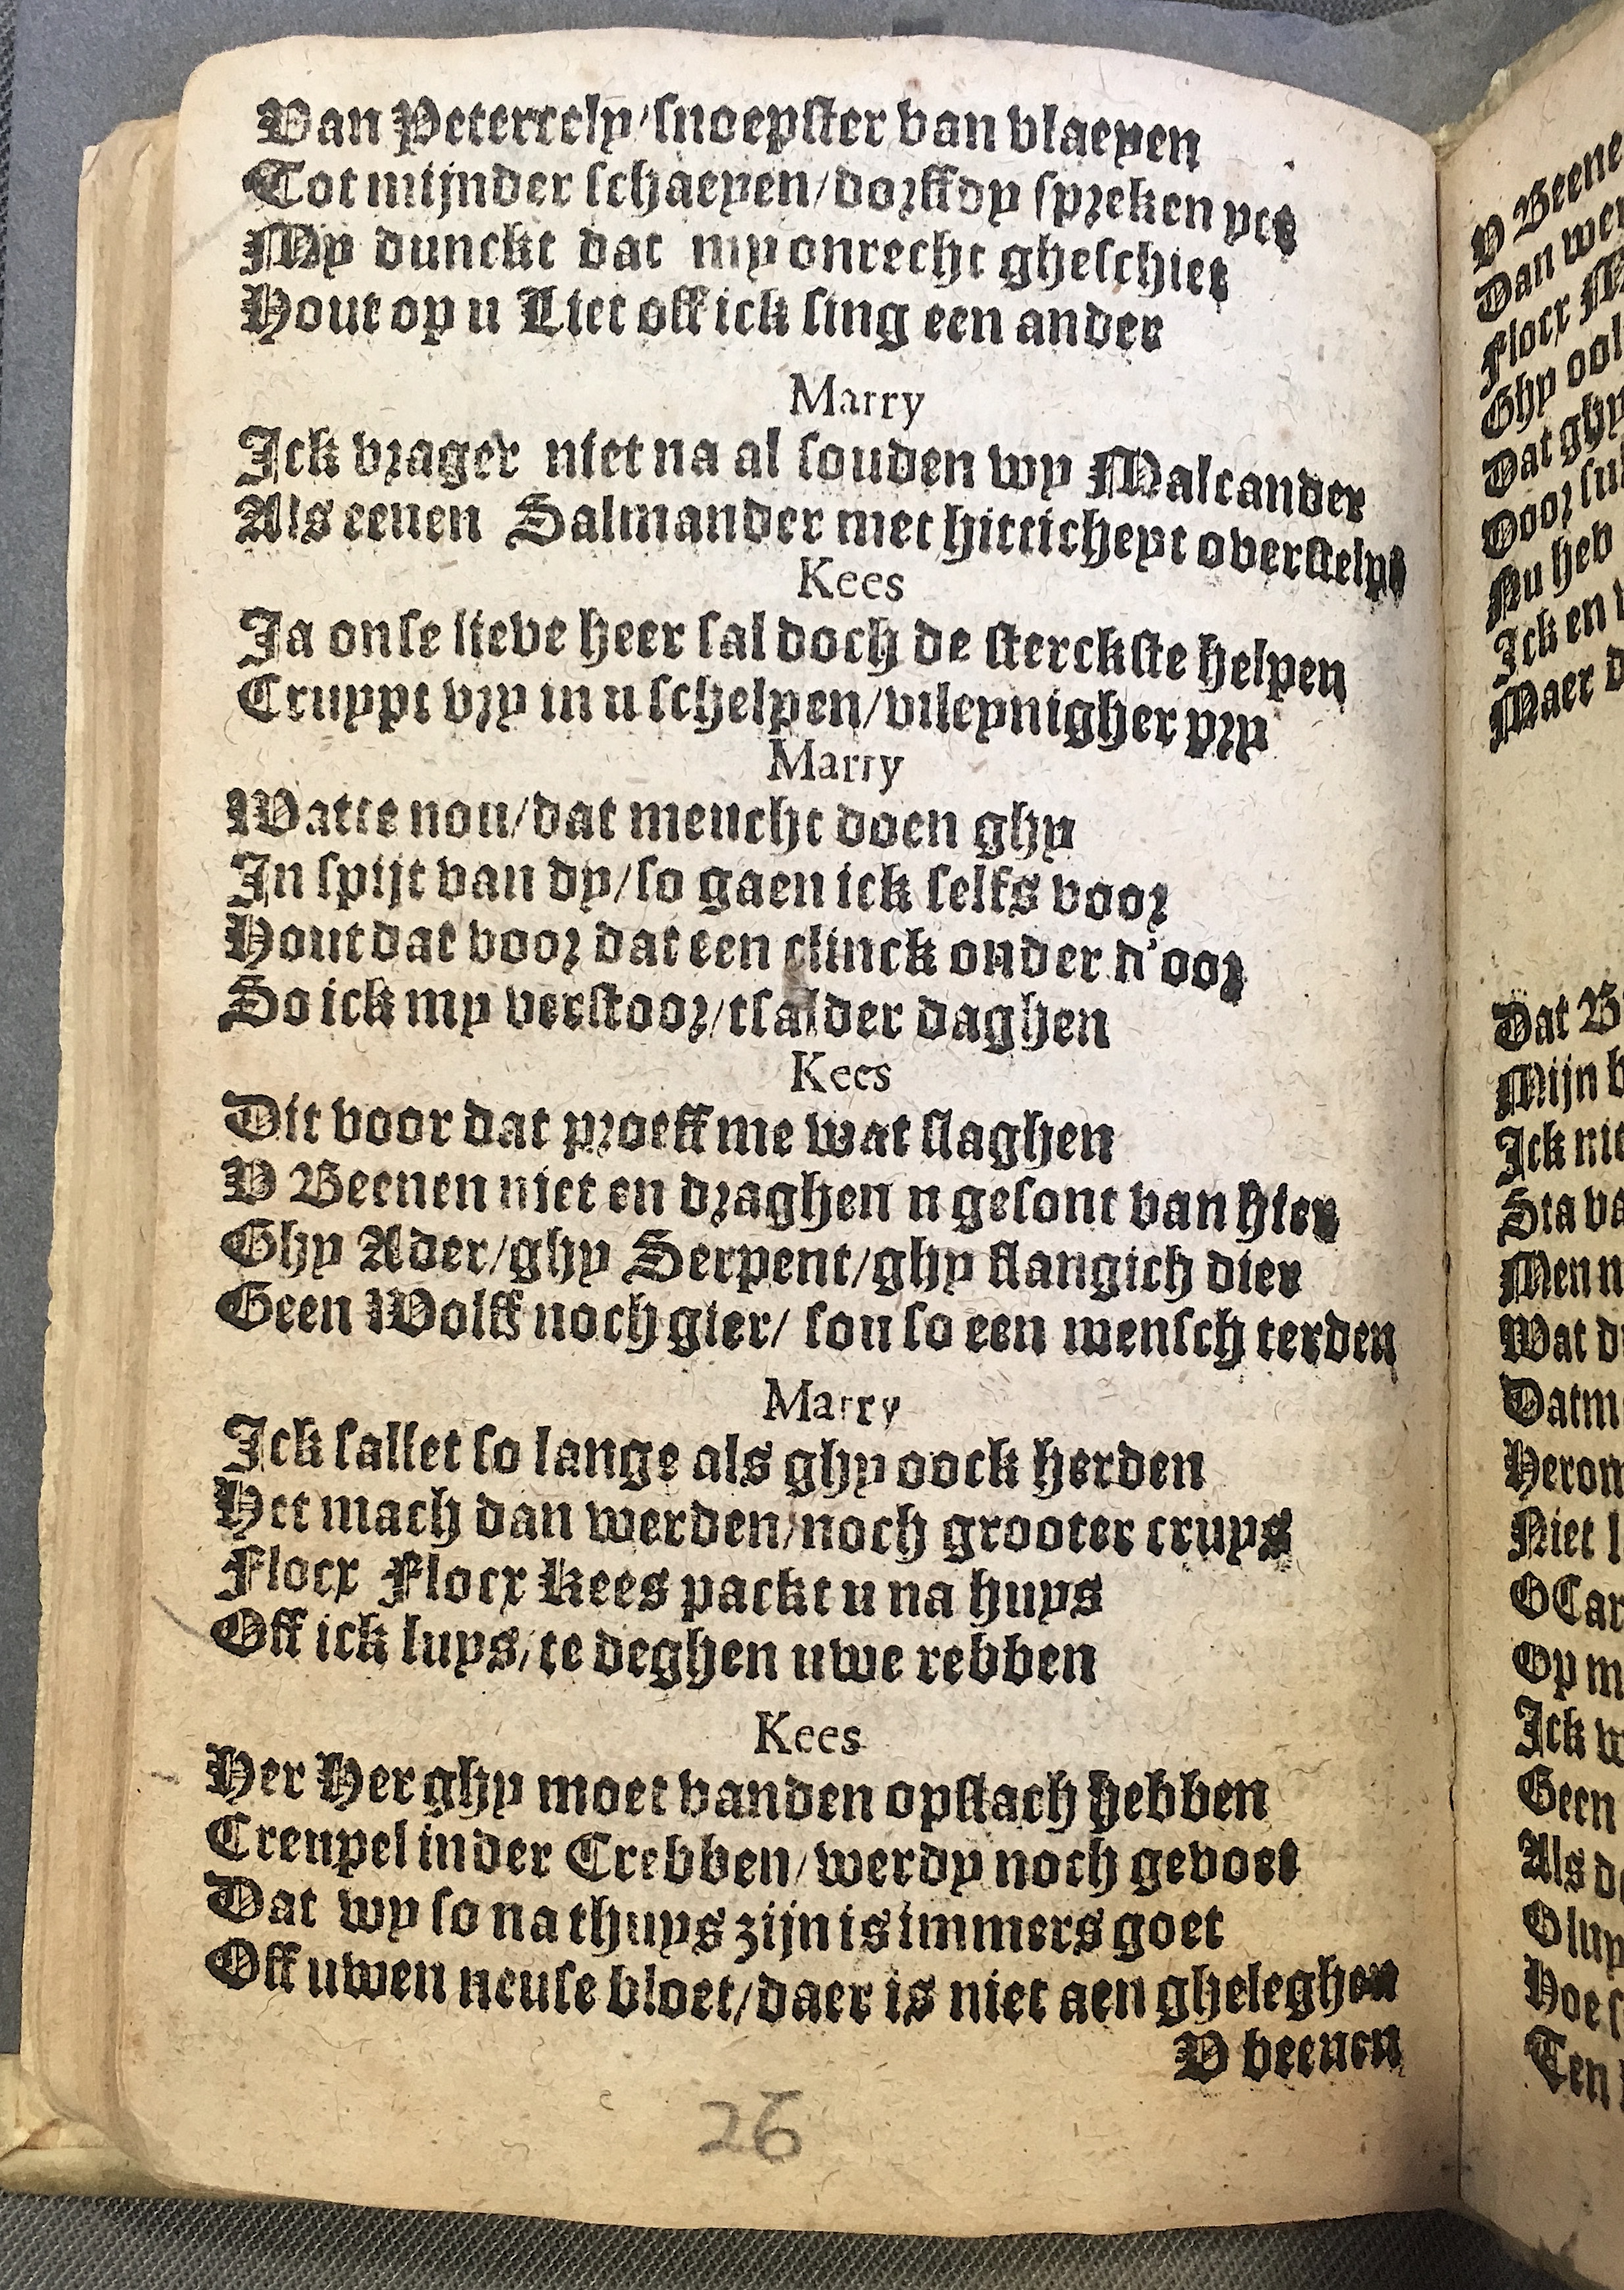 Van Petercely/snoepster van vlaeyen
Tot mijnder schaeyen/dorffdy spreken yet
My dunckt dat my onrecht gheschiet
Hout op u Liet off ick sing een ander
Marry
Ick vrager niet na al souden wy Malcander
Als eenen Salmander met hitticheyt overstelpe
Kees
Ja onse lieve heer sal doch de sterckste helpen
Cruypt vry in u schelpen/vileynigher pry
Marry
Watte nou/dat meucht doen ghy
In spijt van dy/so gaen ick selfs voor
Hout dat voor dat een clinck onder d'oor
So ick my verstoor/tsalder daghen
Kees
Dit voor dat proeff me wat slaghen
V Beenen niet en draghen u gesont van hier
Ghy Ader/ghy Serpent/ghy slangich dier
Geen Wolff noch gier/ sou so een mensch terden
Marry
Ick sallet so lange als ghy oock herden
Het mach dan werden/noch grooter cruys
Flocx Flocx Kees packt u na huys
Off ick luys/te deghen uwe rebben
Kees
Her Her ghy moet vanden opslach hebben
Creupel in der Crebben/werdy noch gevoet
Dat wy so na thuys zijn is immers goet
Off uwen neuse bloet/daer is niet aen gheleghen
V beenen
26
V Beene
Dan wer
Flocx
Ghy ool
Dat ghy
Door sul
Nu heb
Ick en
Maer d
Dat B
Mijn
Ick
Sta va
Men
Wat d
Datm
Herom
Niet
O Car
Op m
Ick
Geen
Als d
Hoe
Ten